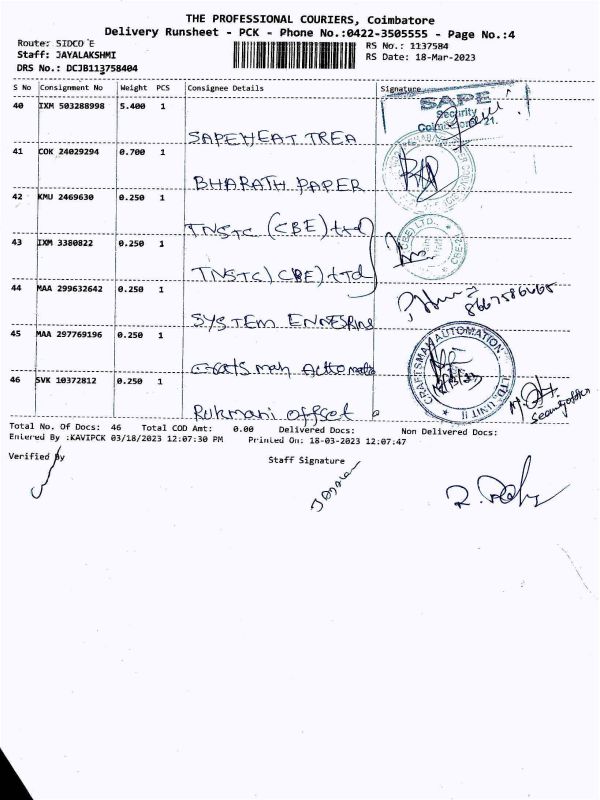 THE PROFESSIONAL COURIERS, Coimbatore
Delivery Runsheet - PCK - Phone No.:0422-3505555 - Page No.:4
Route: SIDCO E
Staff: JAYALAKSHMI
DRS No.: DCJB113758404
RS No.: 1137584
RS Date: 18-Mar-2023
S No Consignment No Weight PCS Consignee Details Signature
40 IXM 503288998 5.400 1
SAPEHEAT TREA
SAPE
Security
41 COK 24029294 0.700 1
BHARATH PAPER
42 KMU 2469630 0.250 1
TNSTC (CBE) LTD
43 IXM 3380822 0.250 1
TNSTC (CBE) LTD
44 MAA 299632642 0.250 1
SYSTEM
45 MAA 297769196 0.250 1
CRAFTSMAN AUTOMATION LTD. UNIT
46 SVK 10372812 0.250 1
Rukmani offset
Total No. Of Docs: 46 Total COD Amt: 0.00 Delivered Docs: Non Delivered Docs:
Entered By :KAVIPCK 03/18/2023 12:07:30 PM Printed On: 18-03-2023 12:07:47
Verified By
Staff Signature